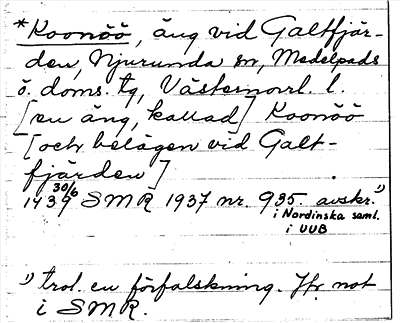 *Koonöö, äng vid Galtfjär-
den, Njurunda sn, Medelpads
ö. doms. tg, Västernorrl. l.
[en äng, kallad] Koonöö
[och belägen vid Galt-
fjärden]
1439 30/6 SMR 1937 nr. 935. avskr.¹⁾
i Nordinska saml.
i UUB
¹⁾ trol. en förfalskning. Jfr. not
i SMR.